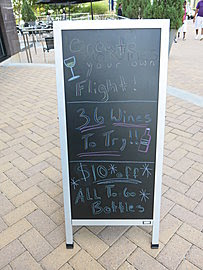 Create
your own
Flight!
36 Wines
To Try!!
*$10 off*
*ALL To Go*
Bottles